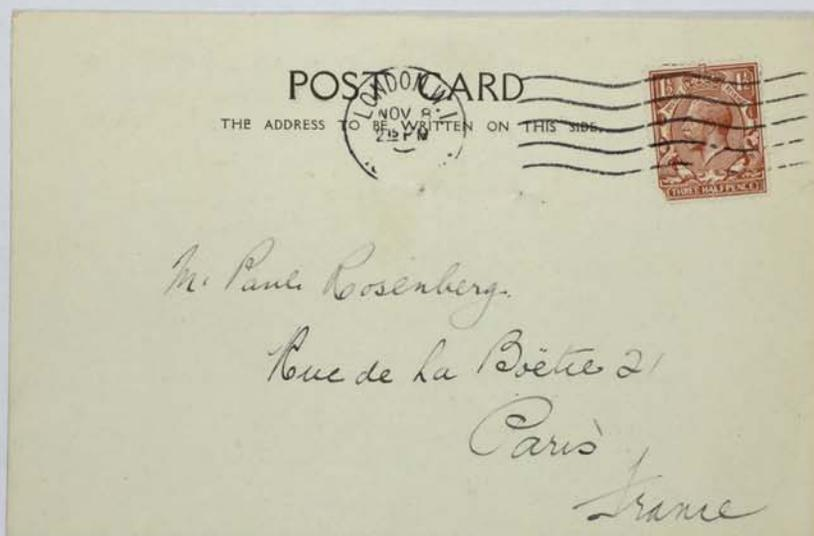 POST CARD
THE ADDRESS TO BE WRITTEN ON THIS SIDE.
LONDON. W.1
NOV 8
2 PM
1½ 1½
THREE HALF PENCE
Mr Paul Rosenberg.
Rue de La Boëtie 21
Paris
France